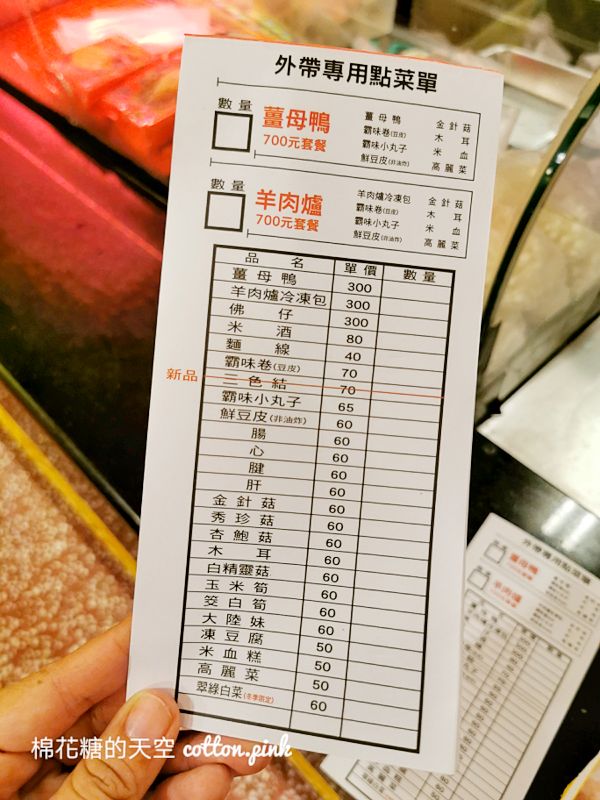 外帶專用點菜單
數量
薑母鴨
700元套餐
薑母鴨 金針菇
霸味卷(豆皮) 木耳
霸味小丸子 米血
鮮豆皮(非油炸) 高麗菜
數量
羊肉爐
700元套餐
羊肉爐冷凍包 金針菇
霸味卷(豆皮) 木耳
霸味小丸子 米血
鮮豆皮(非油炸) 高麗菜
品名 單價 數量
薑母鴨 300
羊肉爐冷凍包 300
佛仔 300
米酒 80
麵線 40
霸味卷(豆皮) 70
新品 三色結 70
霸味小丸子 65
鮮豆皮(非油炸) 60
腸 60
心 60
腱 60
肝 60
金針菇 60
秀珍菇 60
杏鮑菇 60
木耳 60
白精靈菇 60
玉米筍 60
筊白筍 60
大陸妹 60
凍豆腐 50
米血糕 50
高麗菜 50
翠綠白菜(冬季限定) 60
外帶專用點菜單
薑母鴨
羊肉爐
棉花糖的天空 cotton.pink